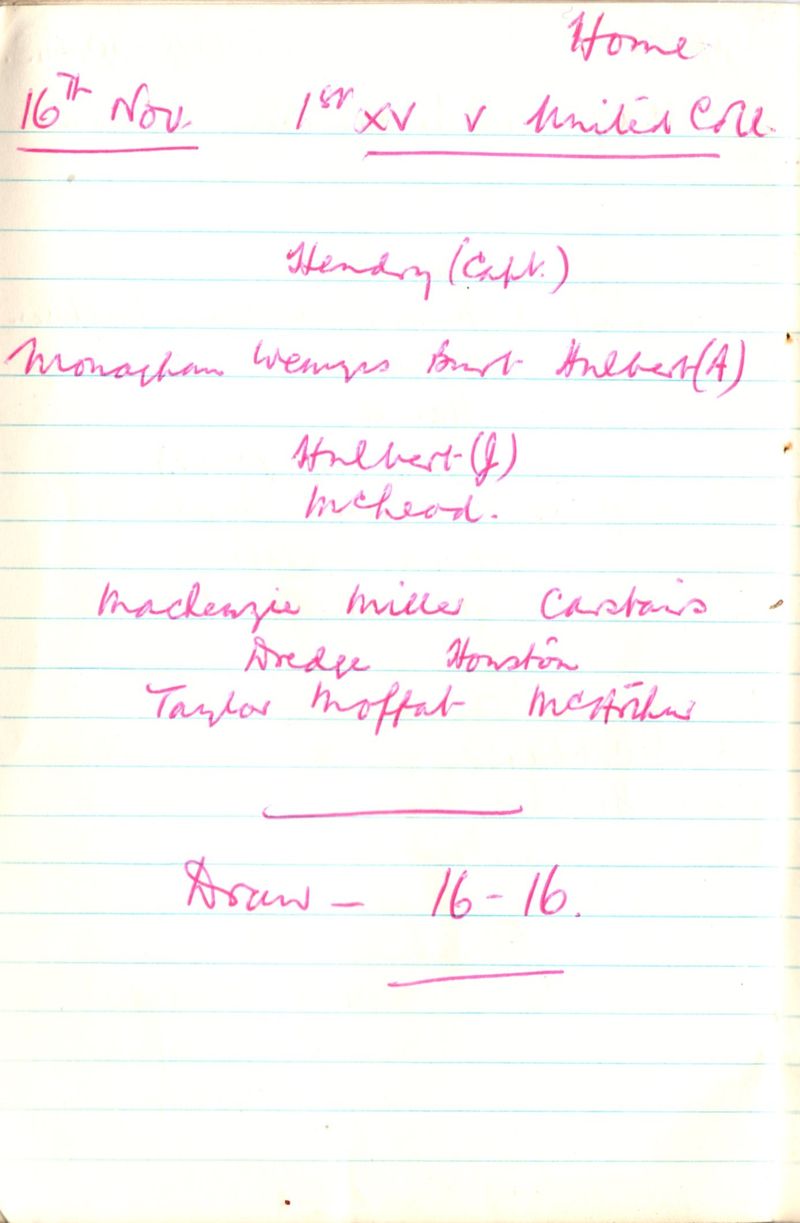 Home
16th Nov. 1st XV v United Coll.
Hendry (Capt.)
Monaghan Wemyss Burt Hulbert (A)
Hulbert (J)
McLeod.
Mackenzie Miller Carstairs
Dredge Houston
Taylor Moffat McArthur
Draw - 16-16.